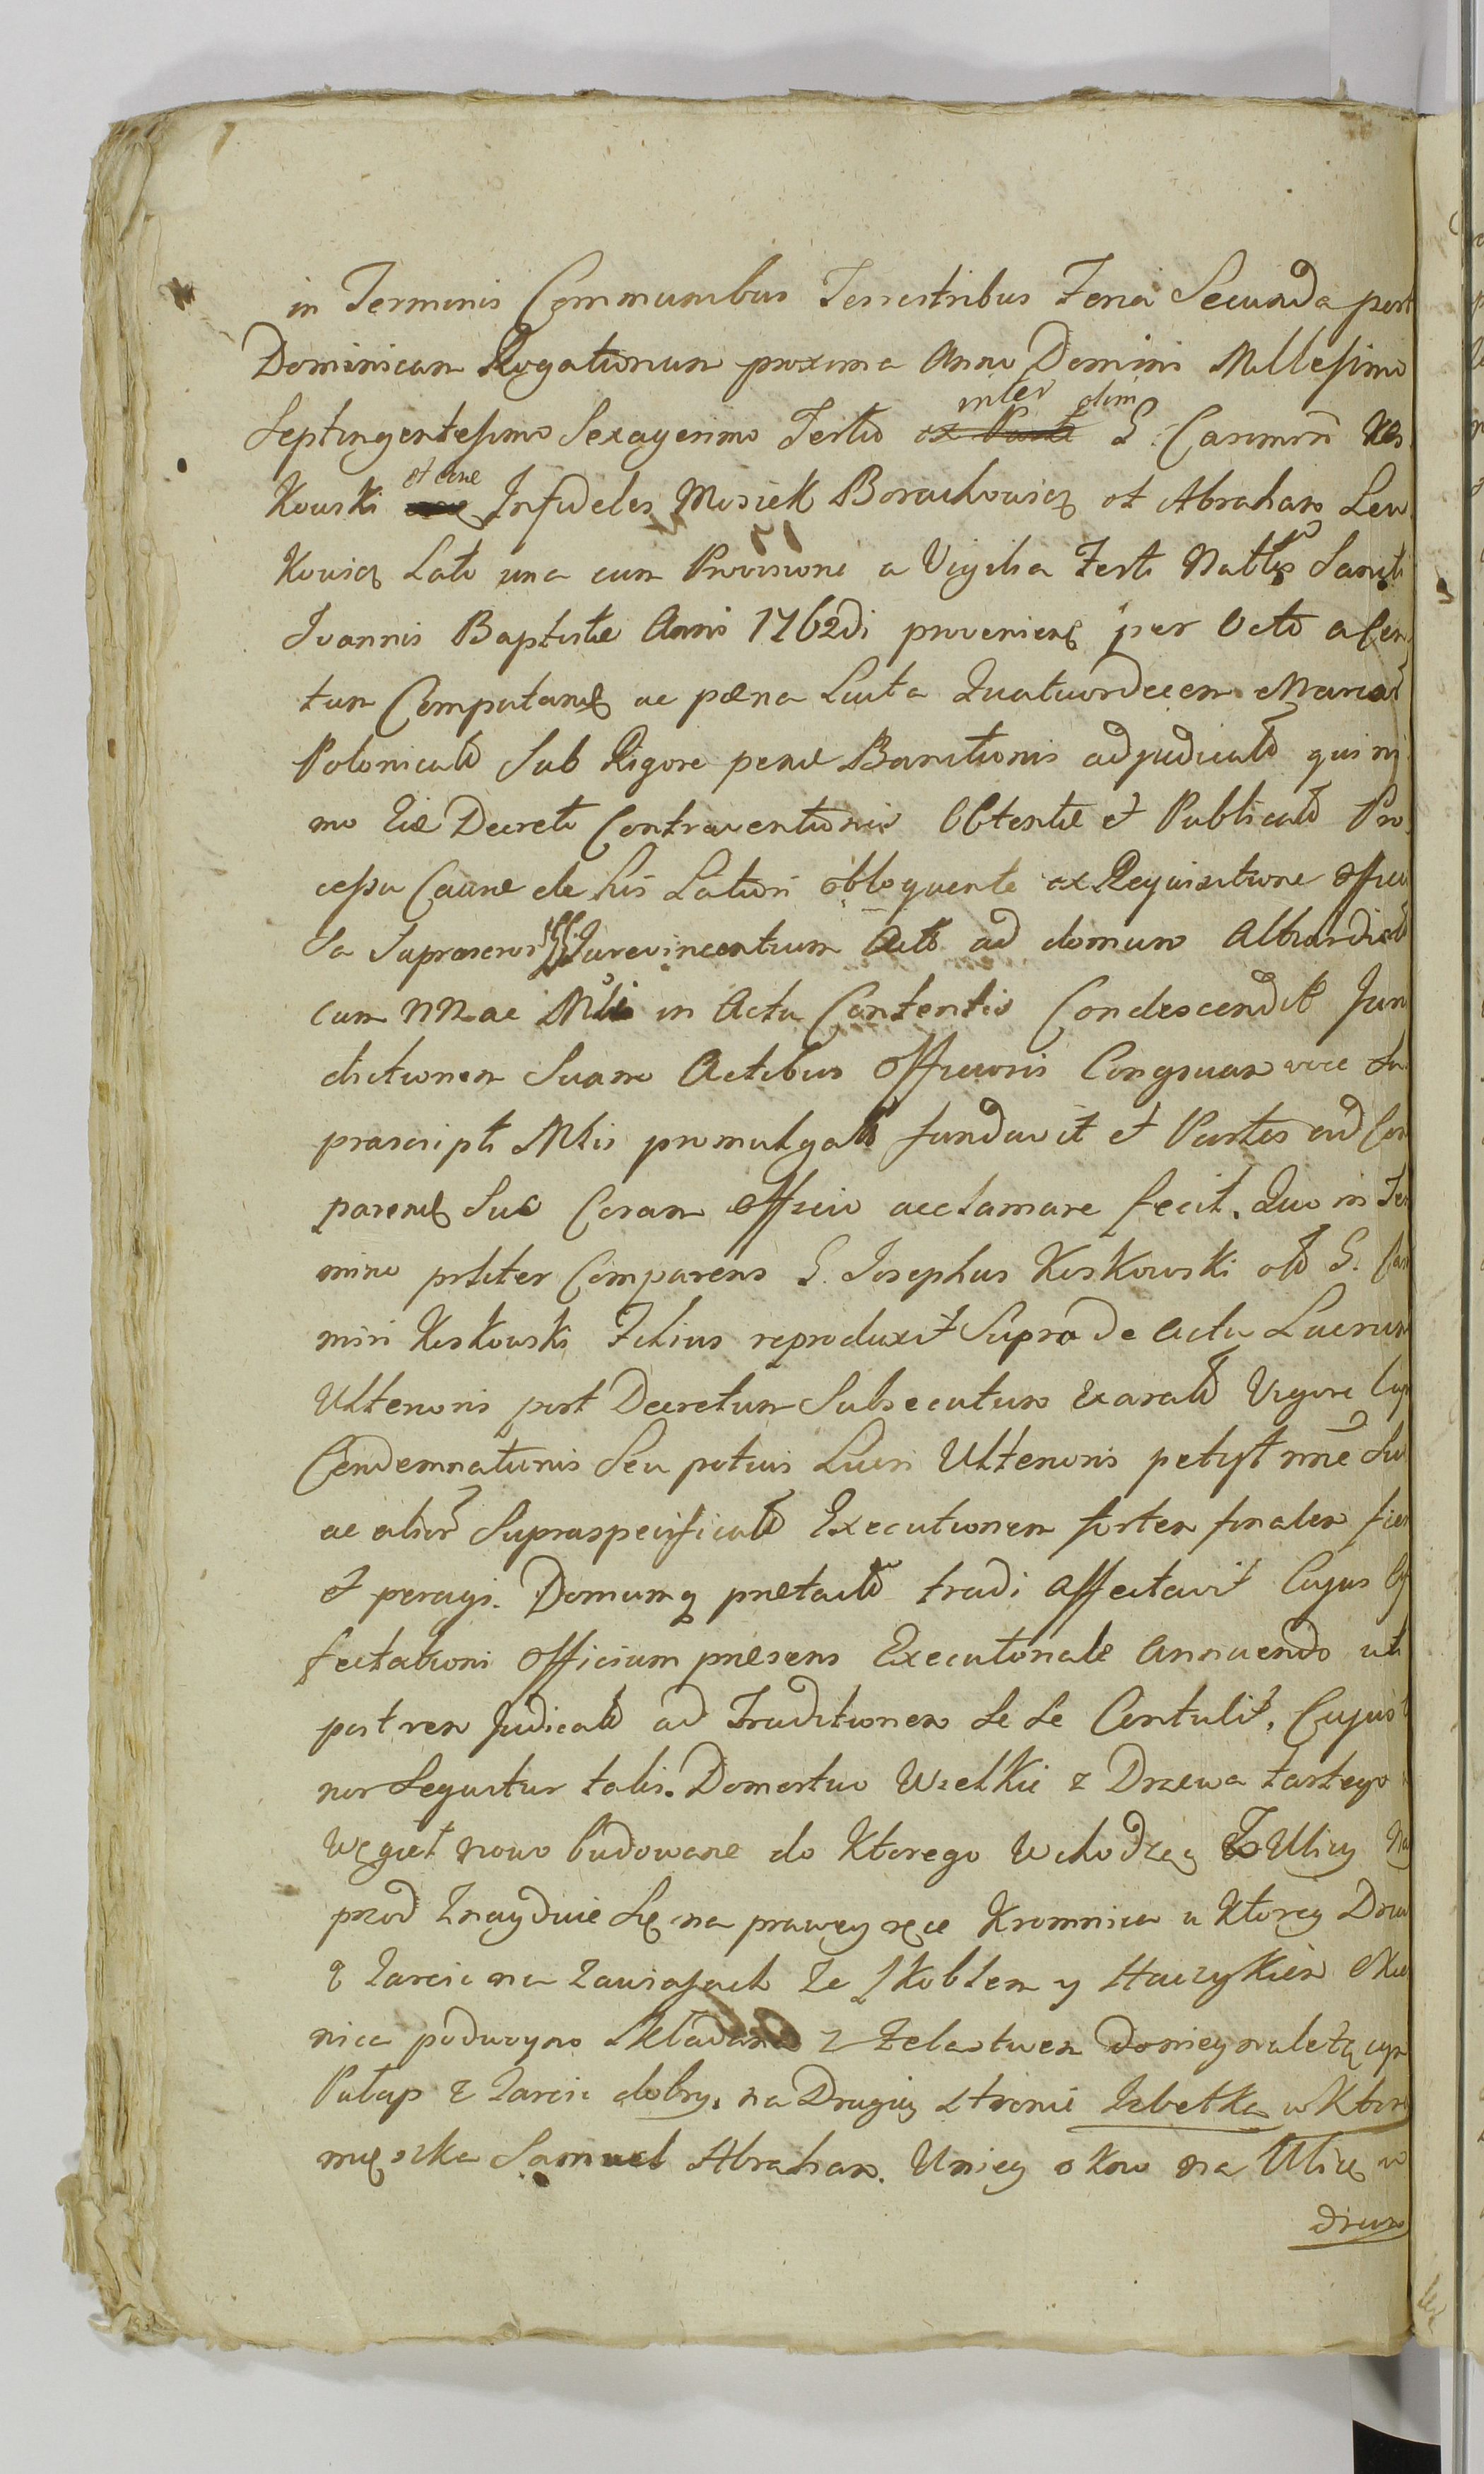 in Terminis Communibus Terrestribus Feria Secunda post
Dominicam Rogationum proxima Anno Domini Millesimo
Septingentesimo Sexagesimo Tertio inter olim G. Casimiri Kos
Kowski et cive Infideles Mosiek Borachowicz et Abraham Lew
Kowicz Lato una cum Provisione a Vigilia Festi Nattis Sancti
Joannis Baptistæ Anni 1762di provenien per Octo a Cen
tum Computan ac pæna Luita Quatuordecem Marcar
Polonicalo Sub Rigore penæ Banitionis adjudicato qui ni
mo Decreti Contraventionis Obtentæ et Publicato Pro
cessu Causæ de his Latiori obloquente ex Requisitione Offici
Sa Jurevincentium Acto ad domum
cum NN ac Mli in Actu Contentis Condescendit Juris
dictionem Suam Actibus Officiosis Congruam voce Su
prascripti Mlis promulgato fundavit et Partes ad Com
paren Sua Coram Officio acclamare fecit. Quo in Ter
mino prliter Comparens G. Josephus Koskowski olo G. Casi
miri Koskowski Filius reproduxit Supra de actu Lucrum
Ulterioris post Decretum Subsecutum Exarato Vigore
Condemnationis Seu potius Lucri Ulterioris petyt nne Suo
ac alior Supraspecificato Executionem fortem finalem fieri
et peragi. Domumq prætacto tradi affectavit Cujus af
fectationi Officium præsens Executoriale annuendo uti
post rem Judicato ad Traditionem Se Se Contulit, Cujus te
nor Seguitur talis. Domostwo Wielkie z Drzewa tartego w
Węgieł nowo budowane do Ktorego Wchodząc z Ulicy Nay
przod Znayduie Się na prawey ręce Kromnica u Ktorey Drzw
z Tarcic na Zawiasach Ze Skoblem y Haczykiem Okie
nice podwoyno Składana z Zelastwem doniey należącym
Pułap z Tarcic dobry. na Drugiey stronie Izbetka w Ktore
mięszka Samuel Abraham. Uniey okno na Ulicę w
drewno